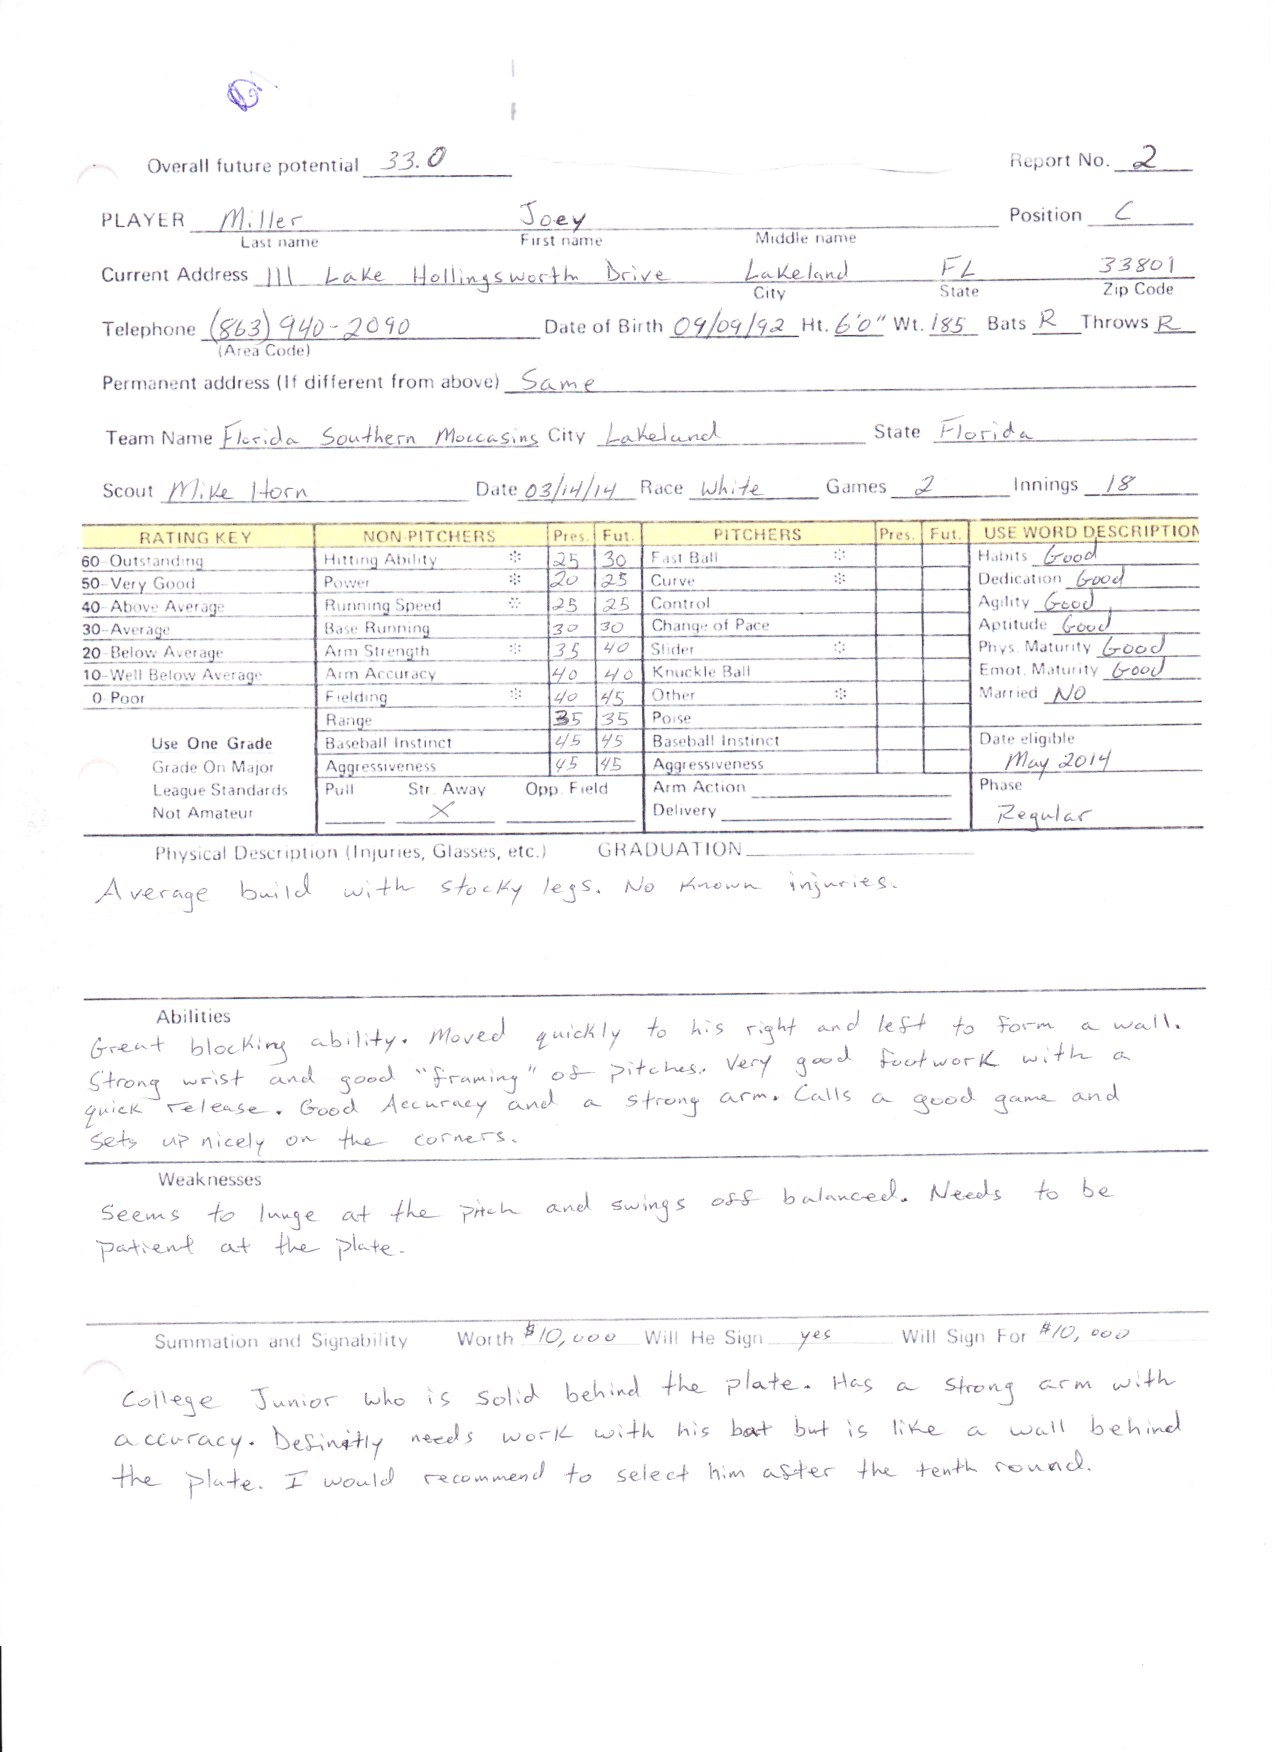 Overall future potential 33.0 Report No. 2
PLAYER Miller Joey Position C
Last name First name Middle name
Current Address 111 Lake Hollingsworth Drive Lakeland FL 33801
City State Zip Code
Telephone (863) 940-2090 Date of Birth 09/09/92 Ht. 6'0" Wt. 185 Bats R Throws R
(Area Code)
Permanent address (If different from above) Same
Team Name Florida Southern Moccasins City Lakeland State Florida
Scout Mike Horn Date 03/14/14 Race White Games 2 Innings 18
RATING KEY NON-PITCHERS Pres. Fut. PITCHERS Pres. Fut. USE WORD DESCRIPTION
60-Outstanding Hitting Ability 25 30 Fast Ball Habits Good
50-Very Good Power 20 25 Curve Dedication Good
40-Above Average Running Speed 25 25 Control Agility Good
30-Average Base Running 30 30 Change of Pace Aptitude Good
20-Below Average Arm Strength 35 40 Slider Phys. Maturity Good
10-Well Below Average Arm Accuracy 40 40 Knuckle Ball Emot. Maturity Good
0-Poor Fielding 40 45 Other Married NO
Range 35 35 Poise
Use One Grade Baseball Instinct 45 45 Baseball Instinct Date eligible
Grade On Major Aggressiveness 45 45 Aggressiveness May 2014
League Standards Pull Str. Away Opp. Field Arm Action Phase
Not Amateur X Delivery Regular
Physical Description (Injuries, Glasses, etc.) GRADUATION
Average build with stocky legs. No known injuries.
Abilities
Great blocking ability. Moved quickly to his right and left to form a wall.
Strong wrist and good "framing" of pitches. Very good footwork with a
quick release. Good Accuracy and a strong arm. Calls a good game and
sets up nicely on the corners.
Weaknesses
Seems to lunge at the pitch and swings off balanced. Needs to be
patient at the plate.
Summation and Signability Worth $10,000 Will He Sign yes Will Sign For $10,000
College Junior who is solid behind the plate. Has a strong arm with
accuracy. Definitly needs work with his bat but is like a wall behind
the plate. I would recommend to select him after the tenth round.